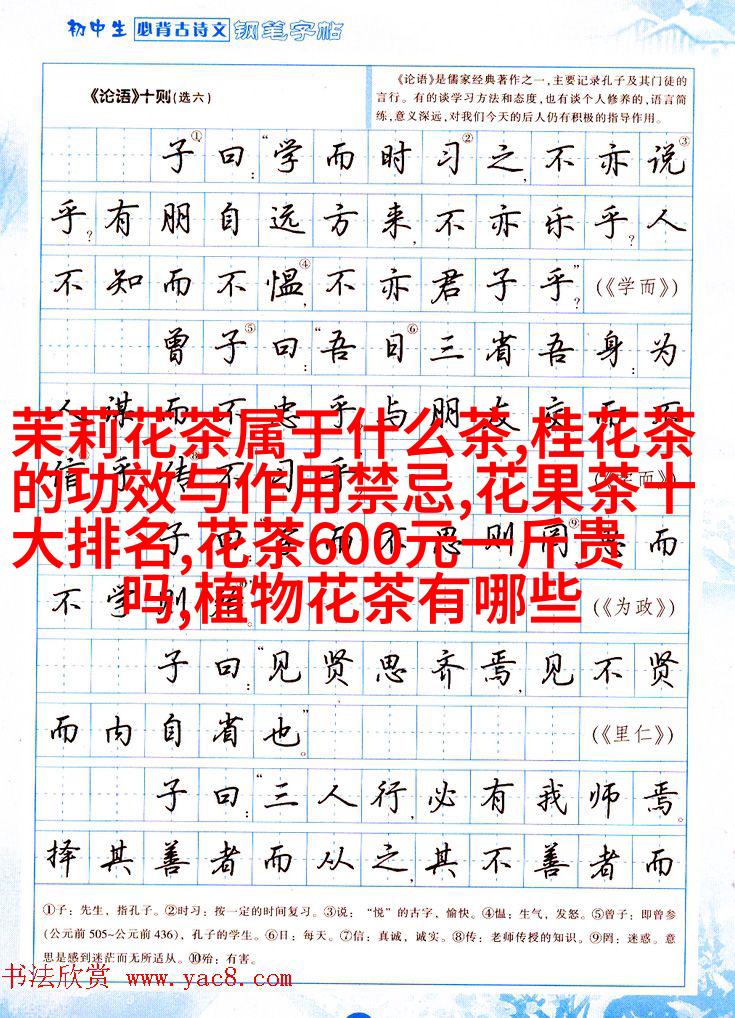 初中生 必背古诗文 钢笔字帖
《论语》十则(选六)
《论语》是儒家经典著作之一,主要记录孔子及其门徒的
言行。有的谈学习方法和态度,也有谈个人修养的,语言简
练,意义深远,对我们今天的后人仍有积极的指导作用。
子①曰:“学而时习②之,不亦说③
乎?有朋自远方来,不亦乐乎?人
不知而不愠④,不亦君子乎?”(《学而》)
曾子⑤曰:“吾日⑥三省吾身:为
人谋而不忠乎与朋友交而不
信乎传不习乎
茉莉花茶属于什么茶,桂花茶
的功效与作用禁忌,花果茶十
大排名,花茶600元一斤贵
吗,植物花茶有哪些
子曰:而不思则罔⑨思而
不学则 (《为政》)
子曰:“见贤思齐焉,见不贤
而内自省也。”(《里仁》)
子曰:“三人行,必有我师焉。
择其善者而从之,其不善者而
①子:先生,指孔子。②时习:按一定的时间复习。③说:“悦”的古字,愉快。④愠:生气,发怒。⑤曾子:即曾参
(公元前505~公元前436),孔子的学生。⑥日:每天。⑦信:真诚,诚实。⑧传:老师传授的知识。⑨罔:迷惑。意
思是感到迷茫而无所适从。⑩殆:有害。
书法欣赏 www.yac8.com